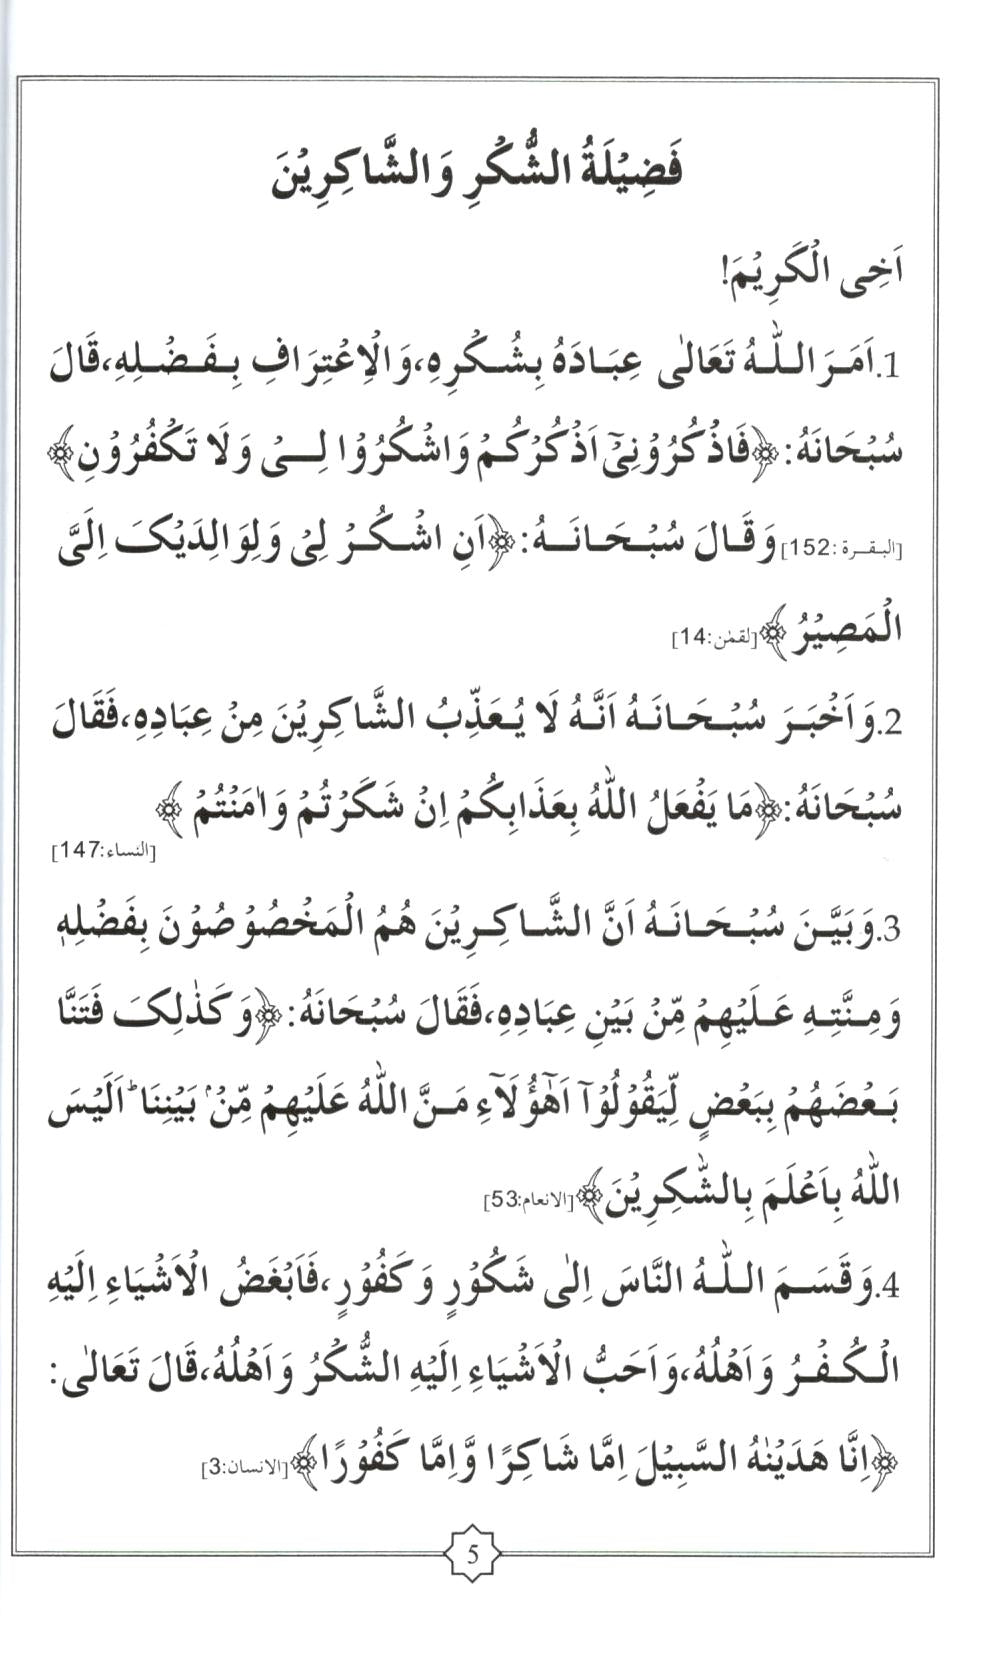 فَضِيْلَةُ الشُّكْرِ وَالشَّاكِرِيْنَ
اَخِى الْكَرِيْمَ!
1.اَمَرَ اللّٰهُ تَعَالٰى عِبَادَهٗ بِشُكْرِهٖ،وَالْاِعْتِرَافِ بِفَضْلِهٖ،قَالَ
سُبْحَانَهٗ:﴿فَاذْكُرُوْنِيْٓ اَذْكُرْكُمْ وَاشْكُرُوْا لِيْ وَلَا تَكْفُرُوْنِ﴾
[البقرة:152]وَقَالَ سُبْحَانَهٗ:﴿اَنِ اشْكُرْ لِيْ وَلِوَالِدَيْكَ اِلَيَّ
الْمَصِيْرُ﴾[لقمٰن:14]
2.وَاَخْبَرَ سُبْحَانَهٗ اَنَّهٗ لَا يُعَذِّبُ الشَّاكِرِيْنَ مِنْ عِبَادِهٖ،فَقَالَ
سُبْحَانَهٗ:﴿مَا يَفْعَلُ اللّٰهُ بِعَذَابِكُمْ اِنْ شَكَرْتُمْ وَاٰمَنْتُمْ﴾
[النساء:147]
3.وَبَيَّنَ سُبْحَانَهٗ اَنَّ الشَّاكِرِيْنَ هُمُ الْمَخْصُوْصُوْنَ بِفَضْلِهٖ
وَمِنَّتِهٖ عَلَيْهِمْ مِّنْ بَيْنِ عِبَادِهٖ،فَقَالَ سُبْحَانَهٗ:﴿وَكَذٰلِكَ فَتَنَّا
بَعْضَهُمْ بِبَعْضٍ لِّيَقُوْلُوْٓا اَهٰٓؤُلَآءِ مَنَّ اللّٰهُ عَلَيْهِمْ مِّنْۢ بَيْنِنَاؕ اَلَيْسَ
اللّٰهُ بِاَعْلَمَ بِالشّٰكِرِيْنَ﴾[الانعام:53]
4.وَقَسَمَ اللّٰهُ النَّاسَ اِلٰى شَكُوْرٍ وَكَفُوْرٍ،فَاَبْغَضُ الْاَشْيَاءِ اِلَيْهِ
الْكُفْرُ وَاَهْلُهٗ،وَاَحَبُّ الْاَشْيَاءِ اِلَيْهِ الشُّكْرُ وَاَهْلُهٗ،قَالَ تَعَالٰى:
﴿اِنَّا هَدَيْنٰهُ السَّبِيْلَ اِمَّا شَاكِرًا وَّاِمَّا كَفُوْرًا﴾[الانسان:3]
5